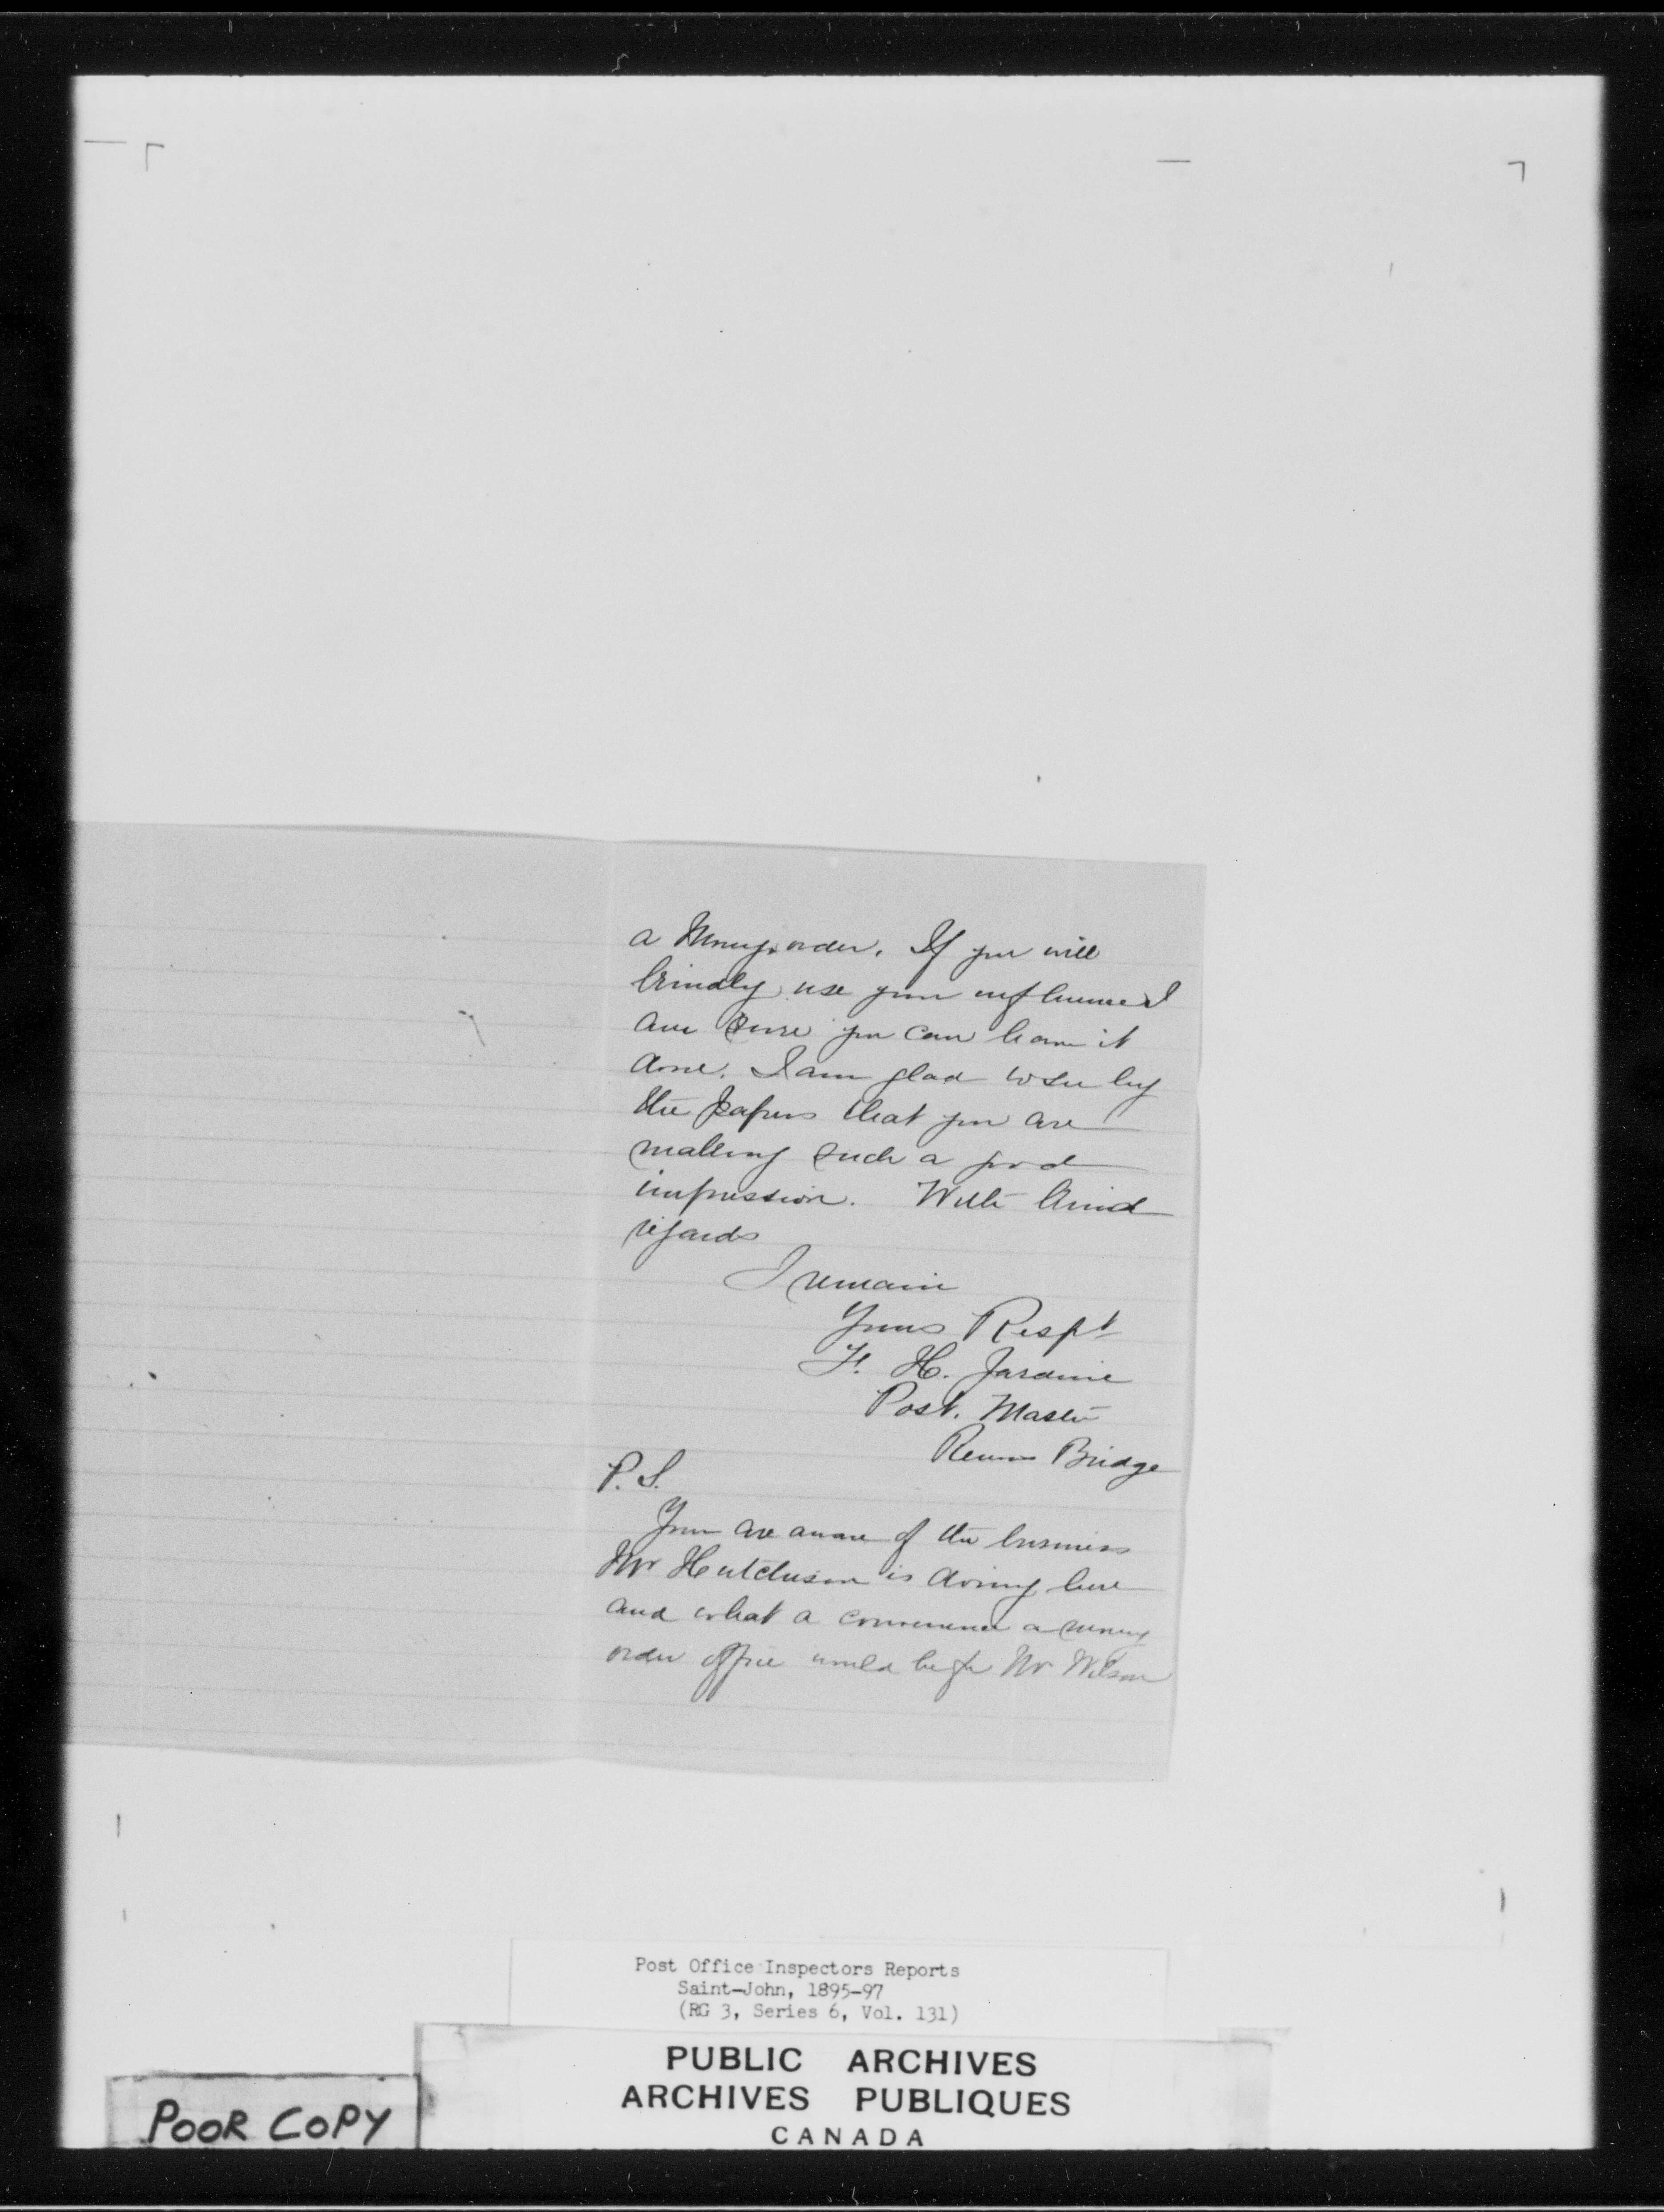 a Money order. If you will
kindly use your influence I
am sure you can have it
done. I am glad to see by
the papers that you are
making such a good
impression. With kind
regards
I remain
Yours Respt
F. H. Jardine
Post. Master
Renous Bridge
P.S.
You are aware of the business
Mr Hutchison is doing here
and what a convenience a money
order office would be for Mr Wilson
Post Office Inspectors Reports
Saint-John, 1895-97
(RG 3, Series 6, Vol. 131)
PUBLIC ARCHIVES
ARCHIVES PUBLIQUES
CANADA
POOR COPY